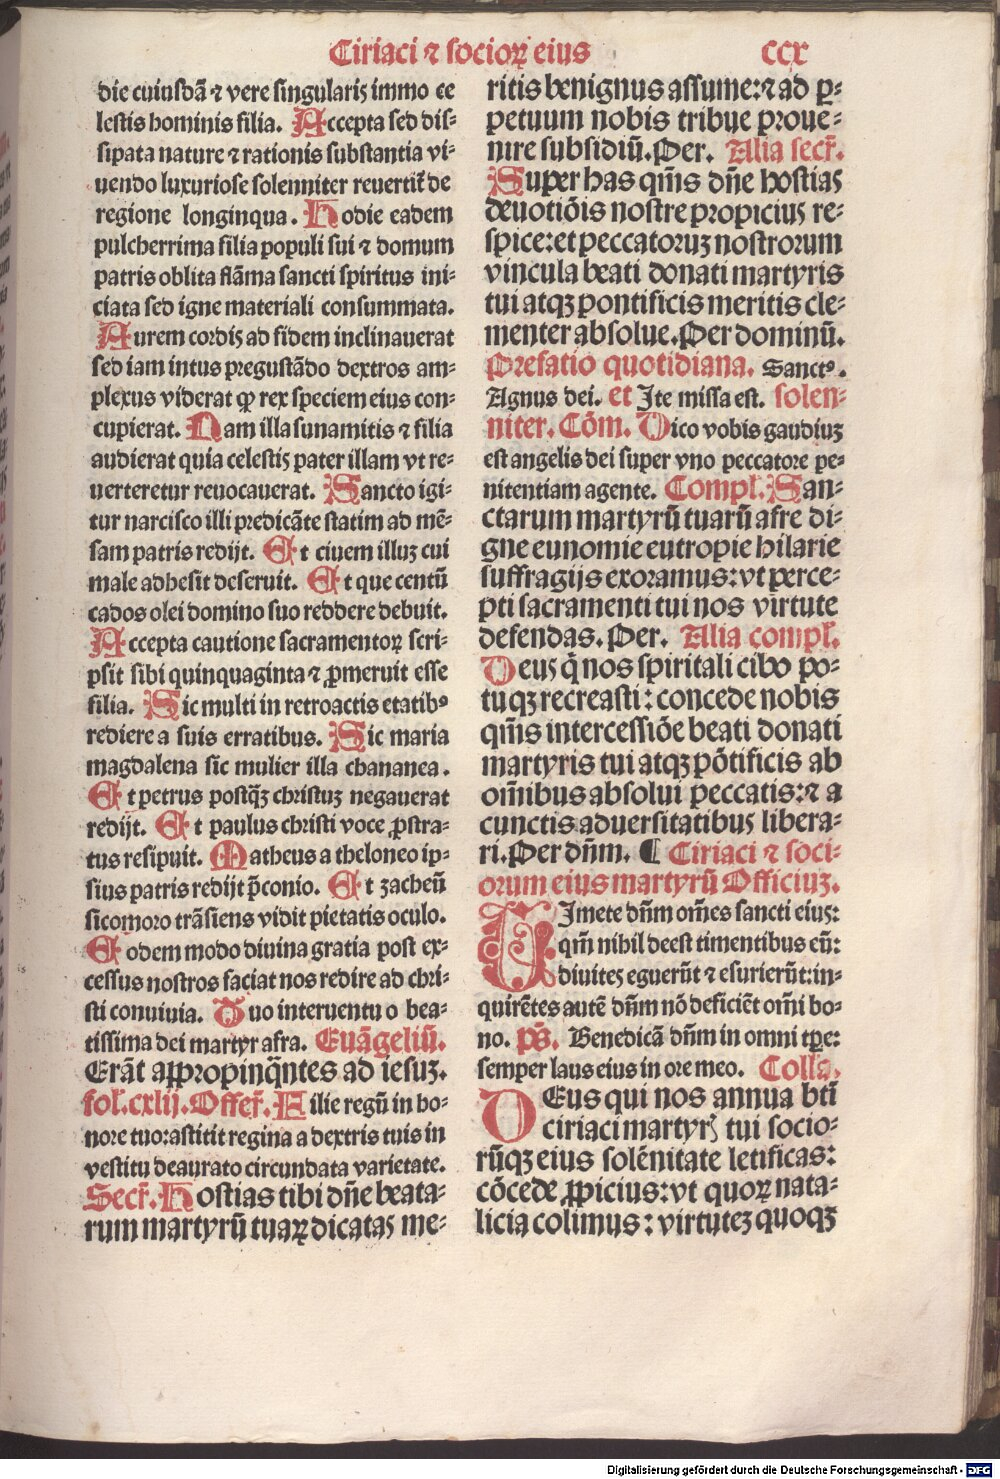 Ciriaci ⁊ socioꝝ eius
ccx
die cuiusdā ⁊ vere singularis immo ce
lestis hominis filia. Accepta sed dis⸗
sipata nature ⁊ rationis substantia vi⸗
uendo luxuriose solenniter reuertit̄ de
regione longinqua. Hodie eadem
pulcherrima filia populi sui ⁊ domum
patris oblita flāma sancti spiritus ini⸗
ciata sed igne materiali consummata.
Aurem cordis ad fidem inclinauerat
sed iam intus pregustādo dextros am⸗
plexus viderat ꝙ rex speciem eius con⸗
cupierat. Nam illa sunamitis ⁊ filia
audierat quia celestis pater illam vt re⸗
uerteretur reuocauerat. Sancto igi⸗
tur narcisco illi predicāte statim ad mē⸗
sam patris redijt. Et ciuem illuꝫ cui
male adhesit deseruit. Et que centū
cados olei domino suo reddere debuit.
Accepta cautione sacramentoꝝ scri⸗
psit sibi quinquaginta ⁊ ꝓmeruit esse
filia. Sic multi in retroactis etatibꝰ
rediere a suis erratibus. Sic maria
magdalena sic mulier illa chananea.
Et petrus postq̄ꝫ christuꝫ negauerat
redijt. Et paulus christi voce ꝓstra⸗
tus resipuit. Matheus a theloneo ip⸗
sius patris redijt p̄conio. Et zacheū
sicomoro trāsiens vidit pietatis oculo.
Eodem modo diuina gratia post ex⸗
cessus nostros faciat nos redire ad chri⸗
sti conuiuia. Tuo interuentu o bea⸗
tissima dei martyr afra. Euāgeliū.
Erāt appropinq̄ntes ad iesuꝫ.
fol̄.cxlij. Offer̄. Filie regū in ho⸗
nore tuo:astitit regina a dextris tuis in
vestitu deaurato circundata varietate.
Secr̄. Hostias tibi dn̄e beata⸗
rum martyrū tuaꝝ dicatas me⸗
ritis benignus assume:⁊ ad ꝑ⸗
petuum nobis tribue proue⸗
nire subsidiū. Per. Alia secr̄.
Super has qm̄s dn̄e hostias
deuotiōis nostre propicius re⸗
spice:et peccatoruꝫ nostrorum
vincula beati donati martyris
tui atqꝫ pontificis meritis cle⸗
menter absolue. Per dominū.
Prefatio quotidiana. Sanctꝰ.
Agnus dei. et Ite missa est. solen⸗
niter. Cōm. Dico vobis gaudiuꝫ
est angelis dei super vno peccatore pe⸗
nitentiam agente. Compl̄. San⸗
ctarum martyrū tuarū afre di⸗
gne eunomie eutropie hilarie
suffragijs exoramus:vt perce⸗
pti sacramenti tui nos virtute
defendas. Per. Alia compl̄.
Deus q̄ nos spiritali cibo po⸗
tuqꝫ recreasti:concede nobis
qm̄s intercessiōe beati donati
martyris tui atqꝫ pōtificis ab
om̄ibus absolui peccatis:⁊ a
cunctis aduersitatibus libera⸗
ri. Per dn̄m. ¶ Ciriaci ⁊ soci⸗
orum eius martyrū Officiuꝫ.
TImete dn̄m om̄es sancti eius:
qm̄ nihil deest timentibus eū:
diuites eguerūt ⁊ esurierūt:in⸗
quirētes autē dn̄m nō deficiēt om̄i bo⸗
no. ps̄. Benedicā dn̄m in omni tꝑe:
semper laus eius in ore meo. Colla.
DEus qui nos annua bt̄i
ciriaci martyrꝭ tui socio⸗
rūqꝫ eius solēnitate letificas:
cōcede ꝓpicius:vt quoꝝ nata⸗
licia colimus:virtuteꝫ quoqꝫ
Digitalisierung gefördert durch die Deutsche Forschungsgemeinschaft - DFG